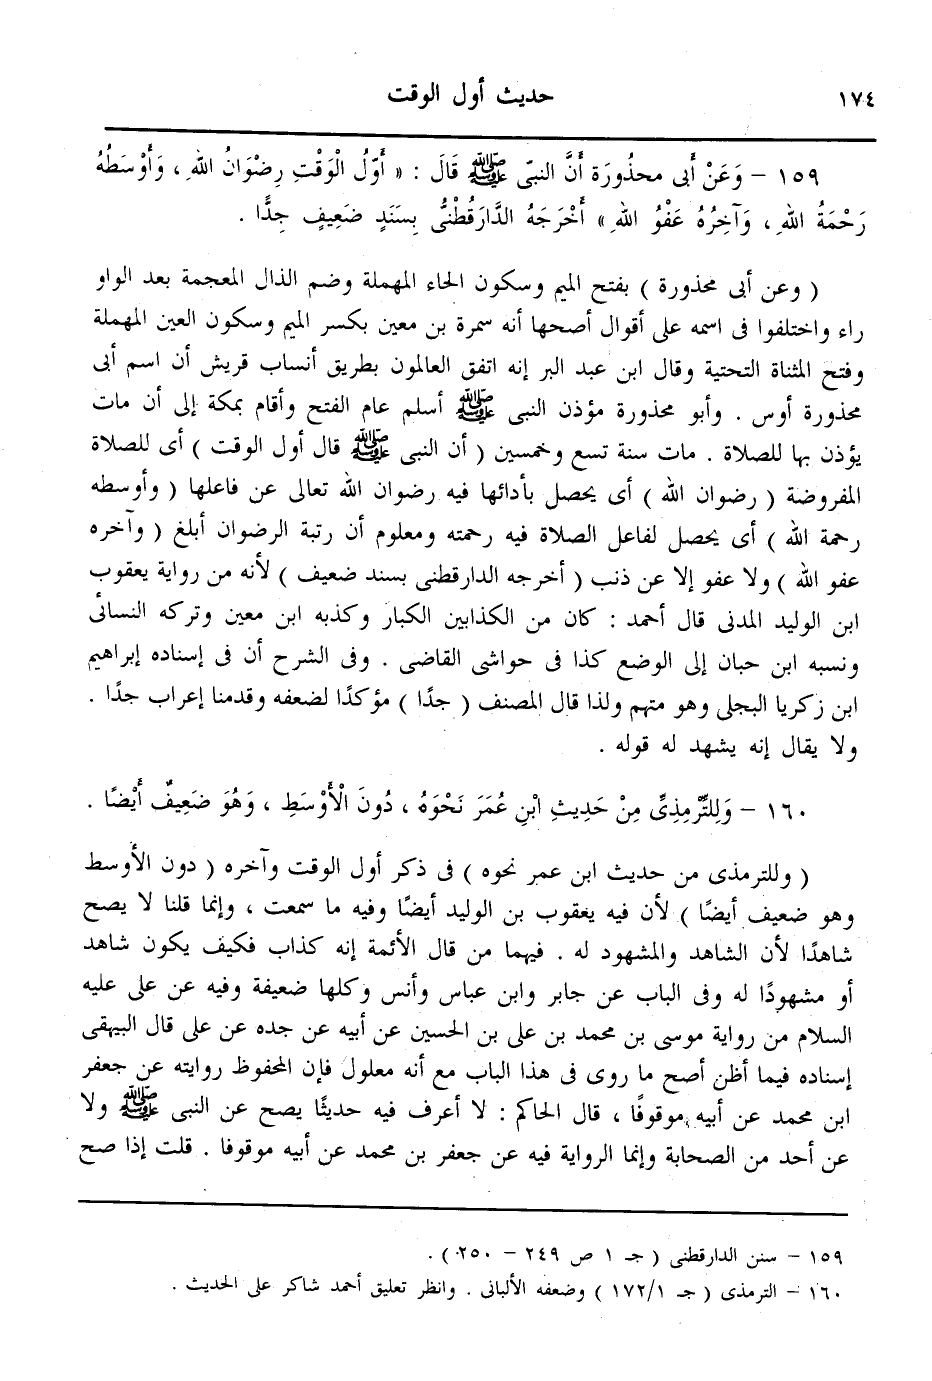 ١٧٤
حديث أول الوقت
١٥٩ – وَعَنْ أَبى محذُورَة أَنَّ النبىّ ﷺ قَالَ : « أَوّلُ الْوَقْتِ رِضْوَانُ اللهِ ، وَأَوْسَطُهُ
رَحْمَةُ اللهِ ، وَآخِرُهُ عَفْوُ اللهِ » أَخْرَجَهُ الدَّارَقُطْنىُّ بِسَنَدٍ ضَعِيفٍ جِدًّا .
( وعن أبى محذورة ) بفتح الميم وسكون الحاء المهملة وضم الذال المعجمة بعد الواو
راء واختلفوا فى اسمه على أقوال أصحها أنه سمرة بن معين بكسر الميم وسكون العين المهملة
وفتح المثناة التحتية وقال ابن عبد البر إنه اتفق العالمون بطريق أنساب قريش أن اسم أبى
محذورة أوس . وأبو محذورة مؤذن النبى ﷺ أسلم عام الفتح وأقام بمكة إلى أن مات
يؤذن بها للصلاة . مات سنة تسع وخمسين ( أن النبى ﷺ قال أول الوقت ) أى للصلاة
المفروضة ( رضوان الله ) أى يحصل بأدائها فيه رضوان الله تعالى عن فاعلها ( وأوسطه
رحمة الله ) أى يحصل لفاعل الصلاة فيه رحمته ومعلوم أن رتبة الرضوان أبلغ ( وآخره
عفو الله ) ولا عفو إلا عن ذنب ( أخرجه الدارقطنى بسند ضعيف ) لأنه من رواية يعقوب
ابن الوليد المدنى قال أحمد : كان من الكذابين الكبار وكذبه ابن معين وتركه النسائى
ونسبه ابن حبان إلى الوضع كذا فى حواشى القاضى . وفى الشرح أن فى إسناده إبراهيم
ابن زكريا البجلى وهو متهم ولذا قال المصنف ( جدًا ) مؤكدًا لضعفه وقدمنا إعراب جدًا .
ولا يقال إنه يشهد له قوله .
١٦٠ – وَلِلتِّرْمِذِىِّ مِنْ حَدِيثِ ابْنِ عُمَرَ نَحْوَهُ ، دُونَ الْأَوْسَطِ ، وَهُوَ ضَعِيفٌ أَيْضًا .
( وللترمذى من حديث ابن عمر نحوه ) فى ذكر أول الوقت وآخره ( دون الأوسط
وهو ضعيف أيضًا ) لأن فيه يعقوب بن الوليد أيضًا وفيه ما سمعت ، وإنما قلنا لا يصح
شاهدًا لأن الشاهد والمشهود له . فيهما من قال الأئمة إنه كذاب فكيف يكون شاهد
أو مشهودًا له وفى الباب عن جابر وابن عباس وأنس وكلها ضعيفة وفيه عن على عليه
السلام من رواية موسى بن محمد بن على بن الحسين عن أبيه عن جده عن على قال البيهقى
إسناده فيما أظن أصح ما روى فى هذا الباب مع أنه معلول فإن المحفوظ روايته عن جعفر
ابن محمد عن أبيه موقوفًا ، قال الحاكم : لا أعرف فيه حديثًا يصح عن النبى ﷺ ولا
عن أحد من الصحابة وإنما الرواية فيه عن جعفر بن محمد عن أبيه موقوفا . قلت إذا صح
١٥٩ – سنن الدارقطنى ( جـ ١ ص ٢٤٩ – ٢٥٠ ) .
١٦٠ – الترمذى ( جـ ١٧٢/١ ) وضعفه الألبانى . وانظر تعليق أحمد شاكر على الحديث .